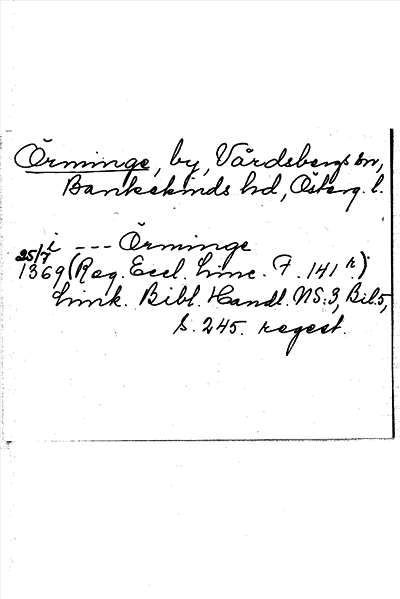 Örminge, by, Vårdsbergs sn,
Bankekinds hd, Österg. l.
i --- Örminge
25/7
1369 (Reg. Eccl. Linc. F. 141 r.)
Link. Bibl. Handl. NS:3, Bil. 5,
s. 245. regest.